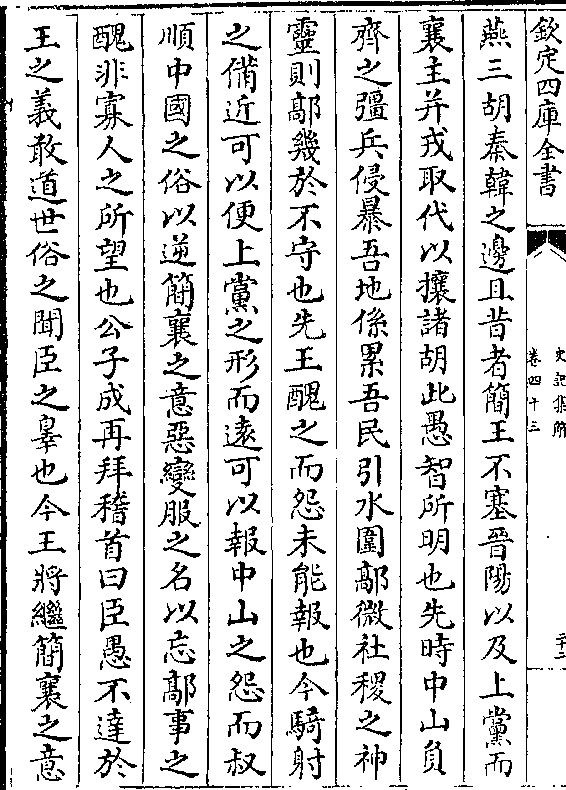 欽定四庫全書
史記集解
卷四十三
二十二
燕三胡秦韓之邊且昔者簡王不塞晉陽以及上黨而
襄主并戎取代以攘諸胡此愚智所明也先時中山負
齊之彊兵侵暴吾地係累吾民引水圍鄗微社稷之神
靈則鄗幾於不守也先王醜之而怨未能報也今騎射
之備近可以便上黨之形而遠可以報中山之怨而叔
順中國之俗以逆簡襄之意惡變服之名以忘鄗事之
醜非寡人之所望也公子成再拜稽首曰臣愚不達於
王之義敢道世俗之聞臣之辠也今王將繼簡襄之意